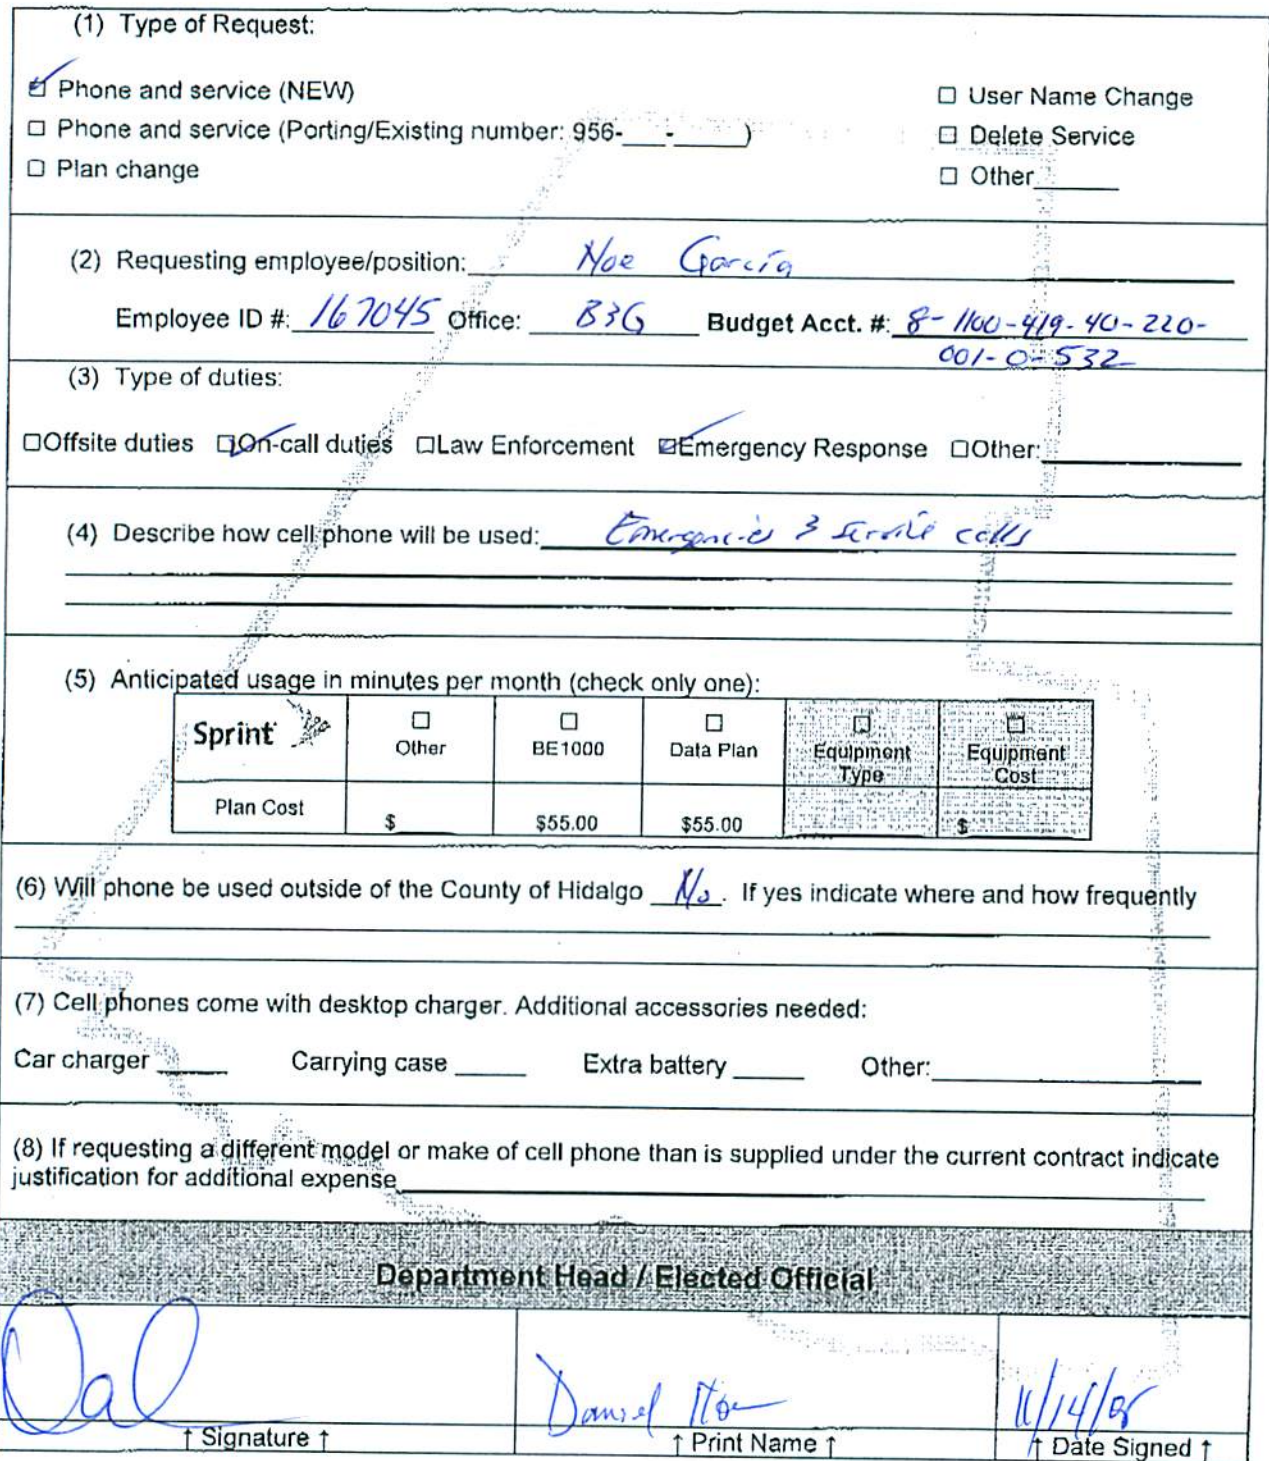 (1) Type of Request:
☑ Phone and service (NEW)
☐ User Name Change
☐ Phone and service (Porting/Existing number: 956-___-_____)
☐ Delete Service
☐ Plan change
☐ Other______
(2) Requesting employee/position: Noe Garcia
Employee ID #: 167045 Office: B3G Budget Acct. #: 8-1100-419-40-220-
001-0-532
(3) Type of duties:
☐Offsite duties ☑On-call duties ☐Law Enforcement ☑Emergency Response ☐Other:
(4) Describe how cell phone will be used: Emergencies & service calls
(5) Anticipated usage in minutes per month (check only one):
Sprint ☐ Other ☐ BE1000 ☐ Data Plan ☐ Equipment Type ☐ Equipment Cost
Plan Cost $____ $55.00 $55.00 $
(6) Will phone be used outside of the County of Hidalgo No. If yes indicate where and how frequently
(7) Cell phones come with desktop charger. Additional accessories needed:
Car charger _____ Carrying case _____ Extra battery _____ Other:
(8) If requesting a different model or make of cell phone than is supplied under the current contract indicate
justification for additional expense
Department Head / Elected Official
Daniel
11/14/08
↑ Signature ↑ ↑ Print Name ↑ ↑ Date Signed ↑